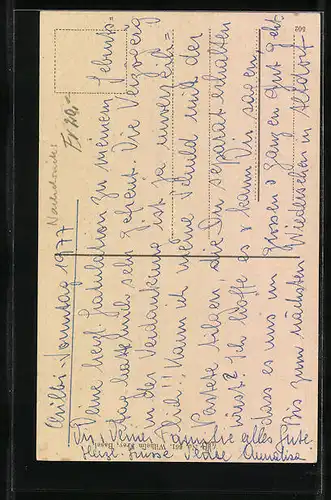 Chilbi-Sonntag 1977
Deine herzl. Gratulation zu meinem Geburts=
tag hat mich sehr gefreut. Die Verzögerg
in der Verdankung ist ja unverzeih=
lich!! Kann ich meine Schuld mit der
Pastete tilgen, die Du separat erhalten
wirst? Ich hoffe es & kann Dir sagen,
dass es uns im grossen & ganzen gut geht.
Bis zum nächsten Wiedersehen in Altdorf
Dir, Deiner Familie alles Gute.
Herzl. Grüsse Annalisa
Nachdruck
Fr 20.-
502
Wilhelm Frey, Basel